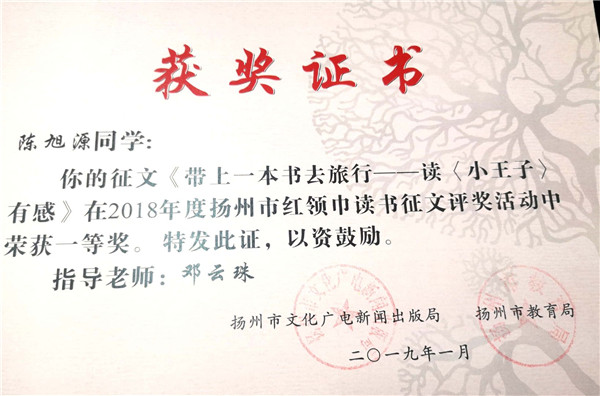 获奖证书
陈旭源同学：
你的征文《带上一本书去旅行——读〈小王子〉
有感》在2018年度扬州市红领巾读书征文评奖活动中
荣获一等奖。特发此证，以资鼓励。
指导老师：邓云珠
扬州市文化广电新闻出版局 扬州市教育局
二〇一九年一月